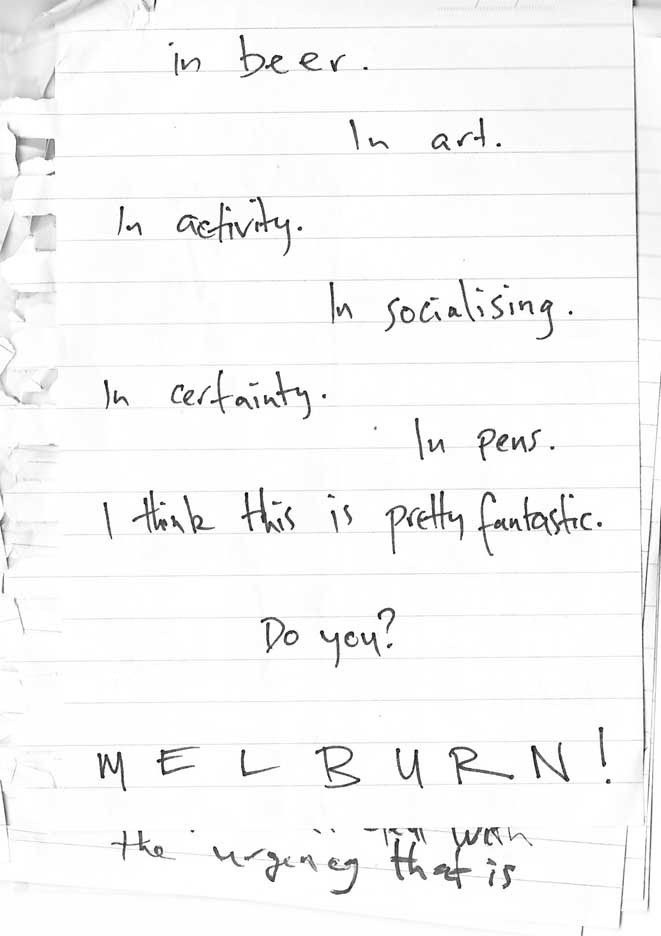 in beer.
In art.
In activity.
In socialising.
In certainty.
In pens.
I think this is pretty fantastic.
Do you?
MELBURN!
with
the urgency that is